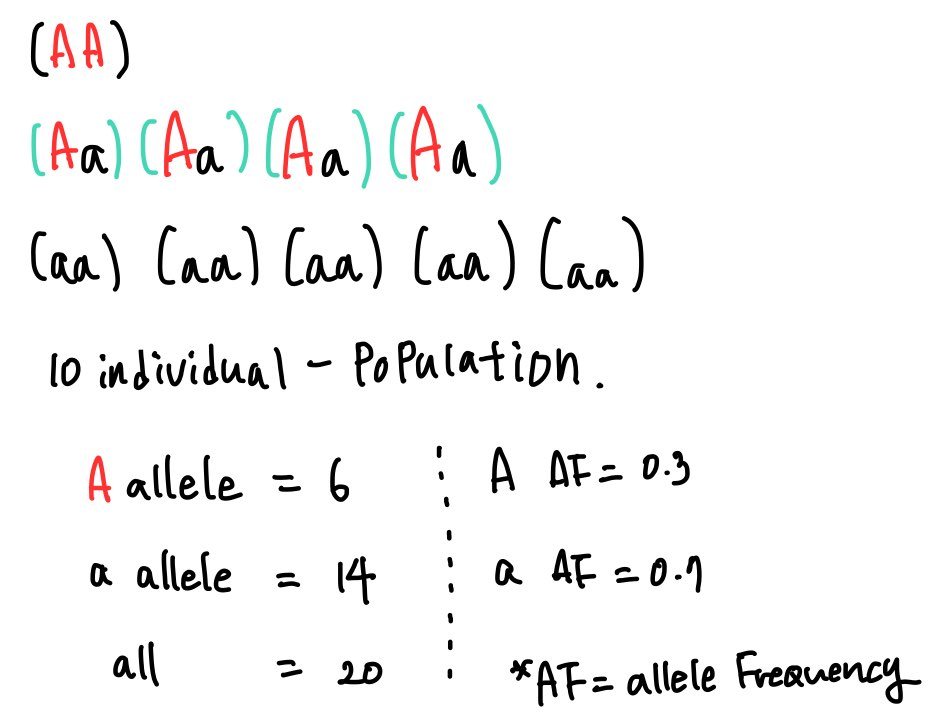 (AA)
(Aa) (Aa) (Aa) (Aa)
(aa) (aa) (aa) (aa) (aa)
10 individual - Population.
A allele = 6
a allele = 14
all = 20
A AF = 0.3
a AF = 0.7
*AF = allele Frequency